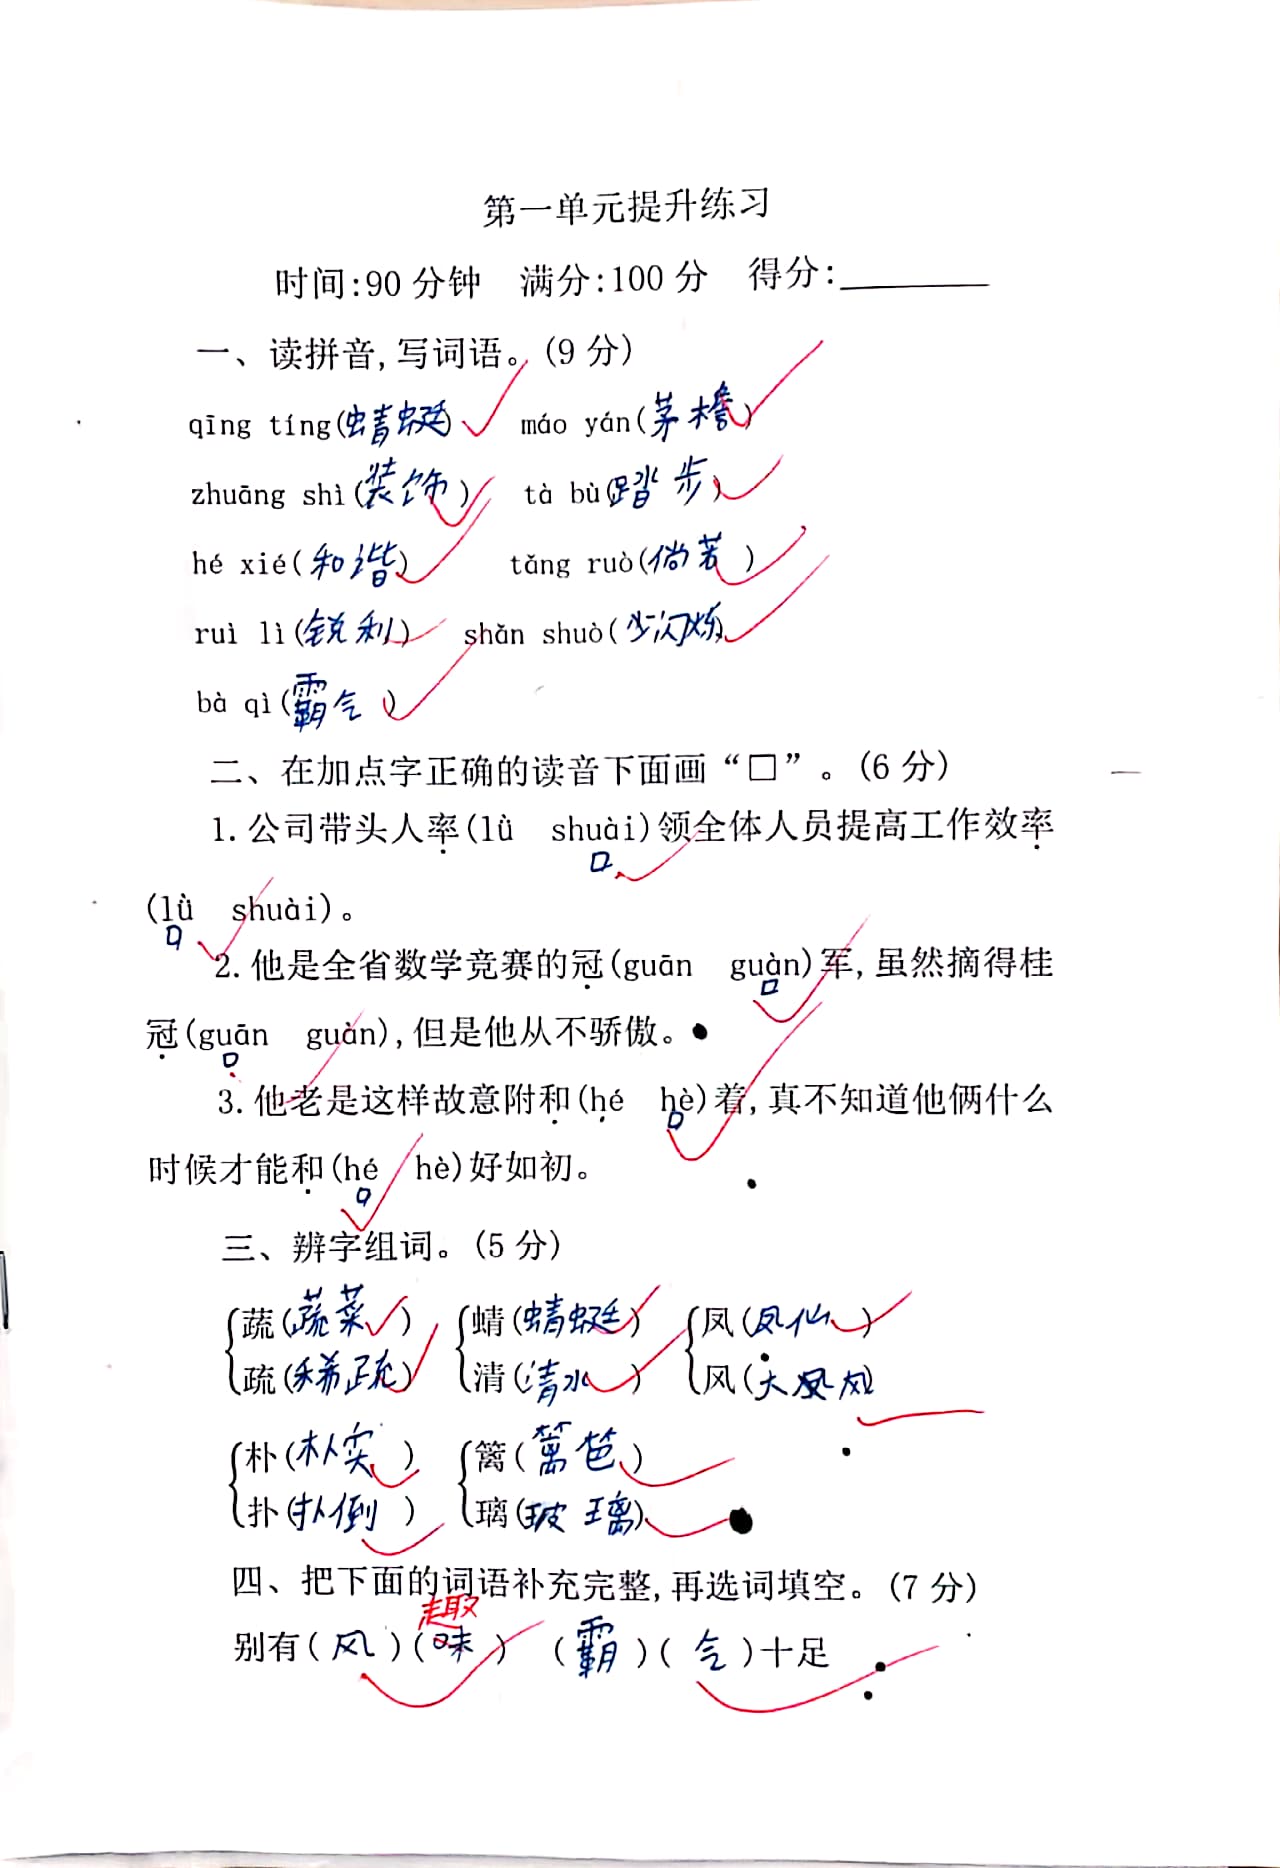 第一单元提升练习
时间:90 分钟 满分:100 分 得分:
一、读拼音,写词语。(9 分)
qīng tíng(蜻蜓) máo yán(茅檐)
zhuāng shì(装饰) tà bù(踏步)
hé xié(和谐) tǎng ruò(倘若)
ruì lì(锐利) shǎn shuò(闪烁)
bà qì(霸气)
二、在加点字正确的读音下面画“□”。(6 分)
1.公司带头人率(lǜ shuài)领全体人员提高工作效率
(lǜ shuài)。
2.他是全省数学竞赛的冠(guān guàn)军,虽然摘得桂
冠(guān guàn),但是他从不骄傲。
3.他老是这样故意附和(hé hè)着,真不知道他俩什么
时候才能和(hé hè)好如初。
三、辨字组词。(5 分)
蔬(蔬菜) 蜻(蜻蜓) 凤(凤仙)
疏(稀疏) 清(清水) 风(大风)
朴(朴实) 篱(篱笆)
扑(扑倒) 璃(玻璃)
四、把下面的词语补充完整,再选词填空。(7 分)
趣
别有(风)(味) (霸)(气)十足